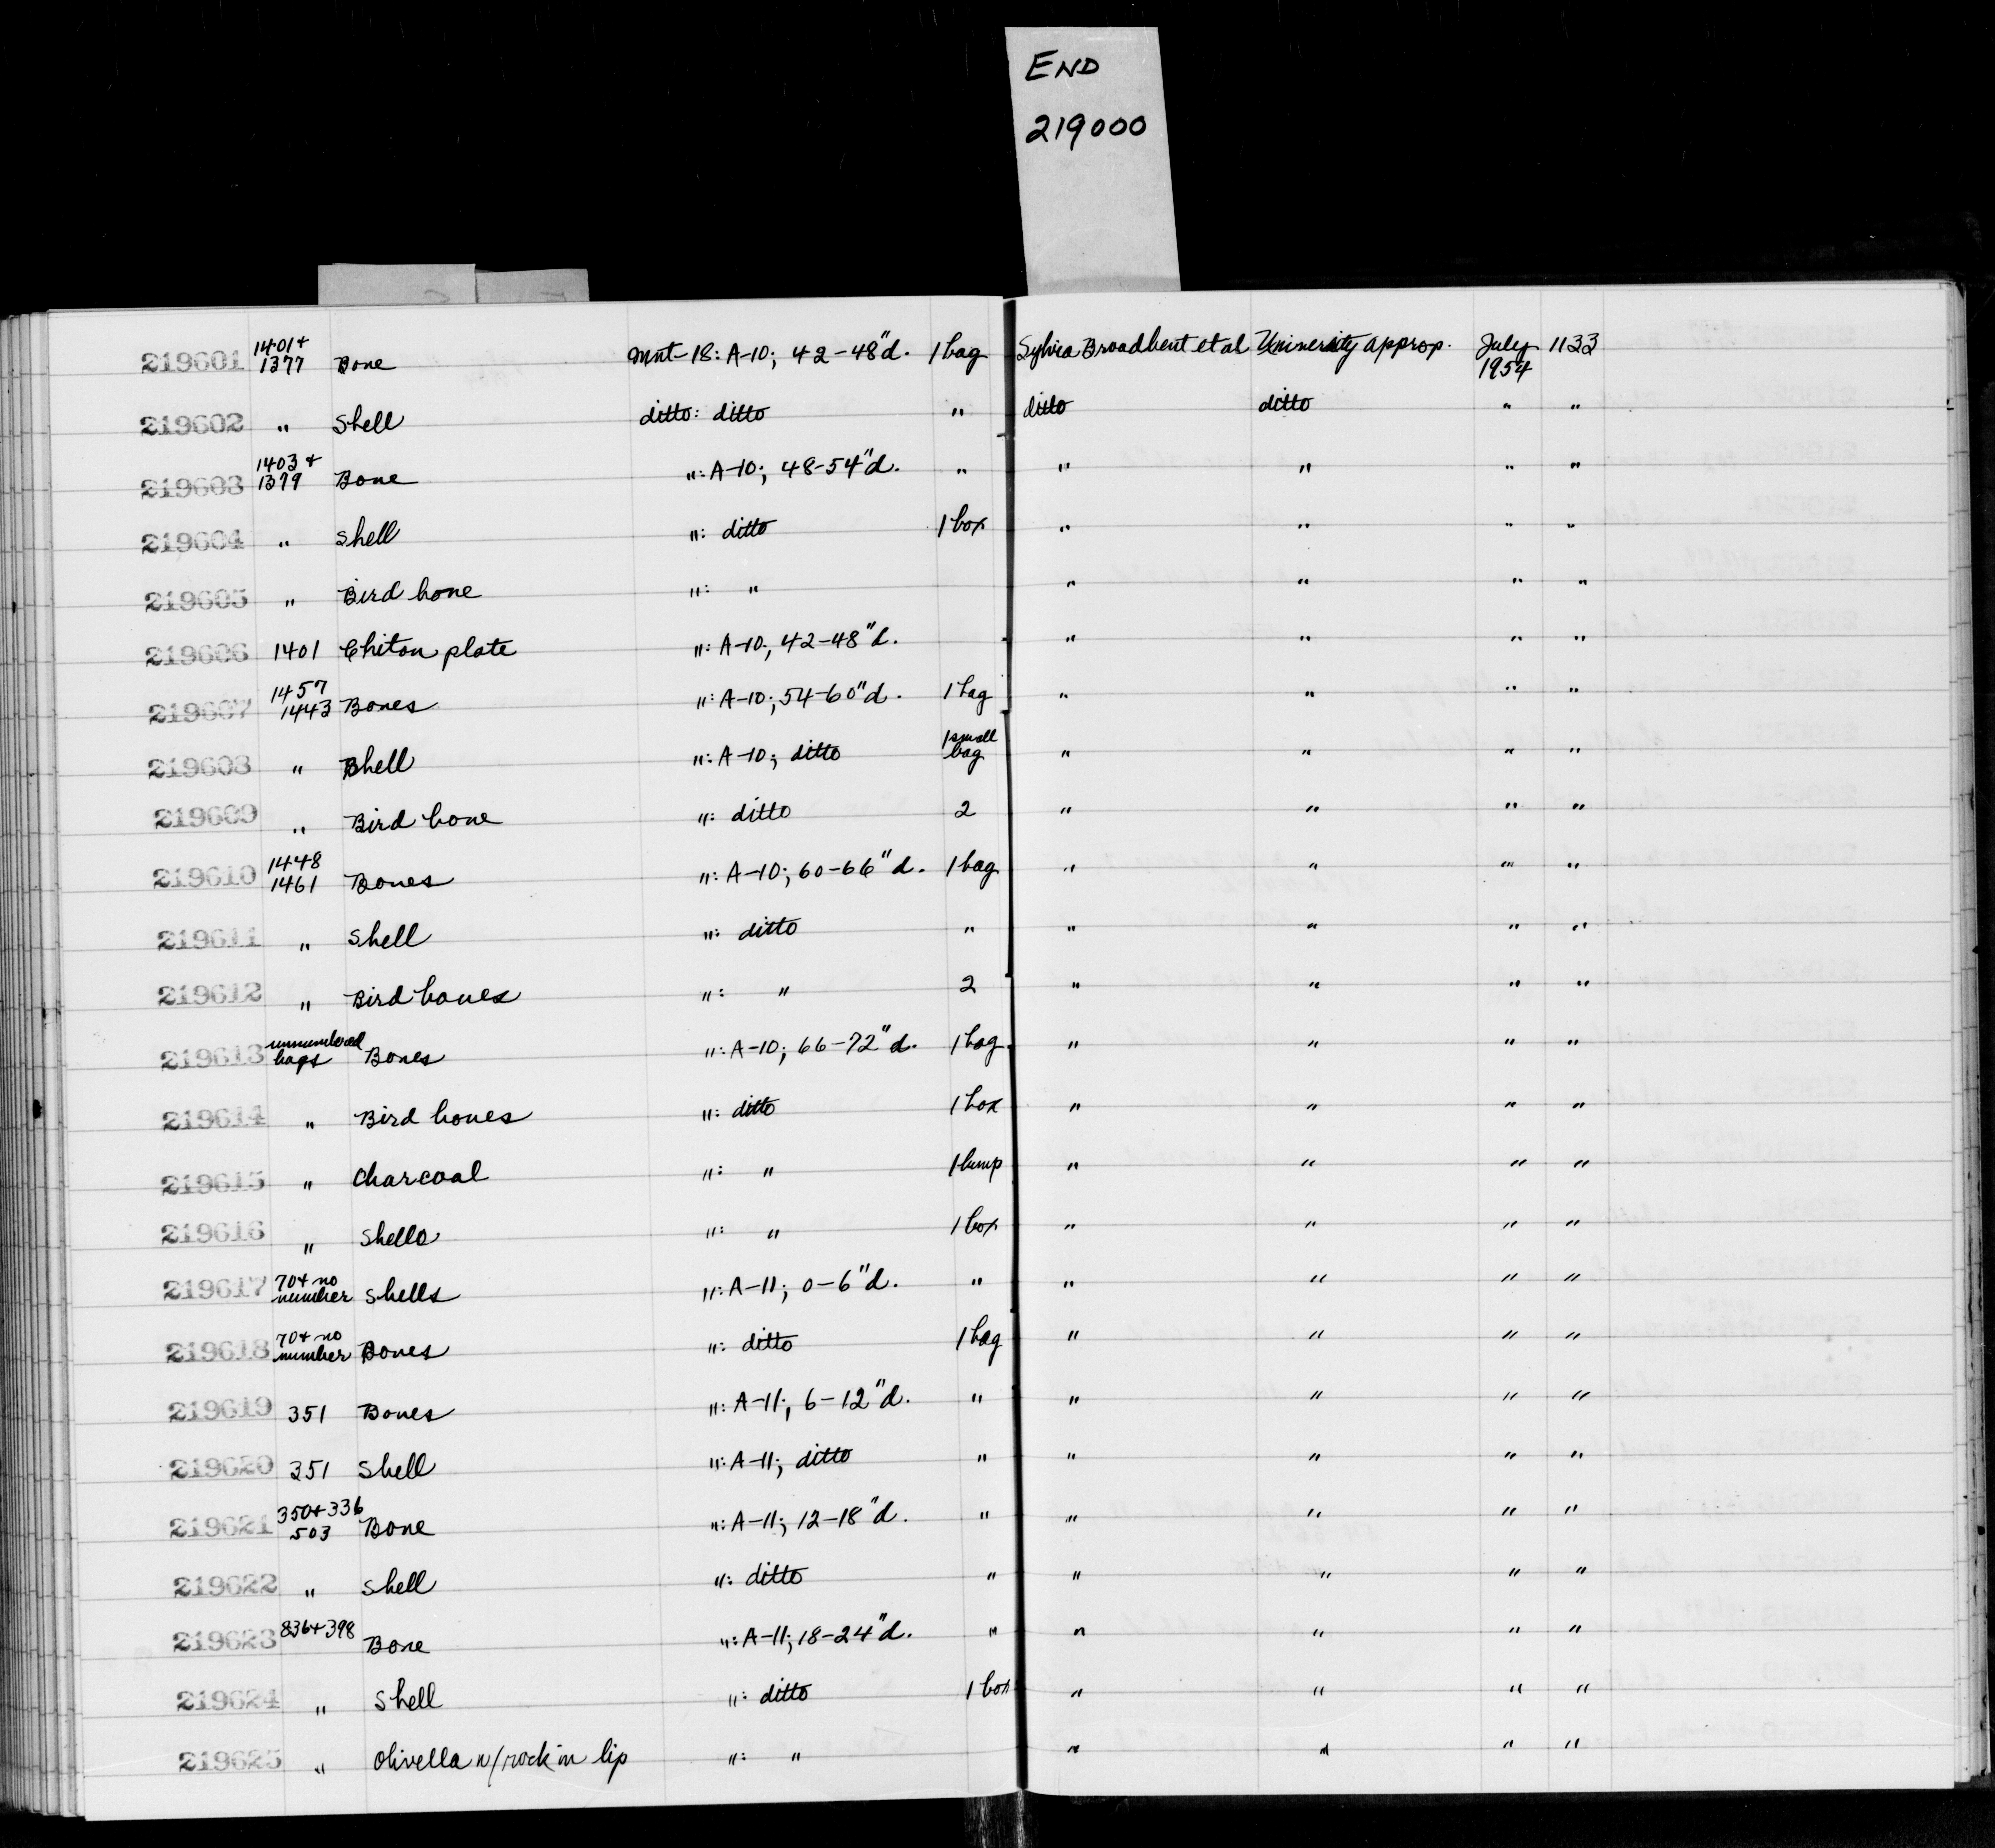 END
219000
219601 1401+ 1377 Bone Mnt-18: A-10; 42-48"d. 1 bag Sylvia Broadbent et al University approp. July 1954 1133
219602 " Shell ditto: ditto " ditto ditto " "
219603 1403+ 1379 Bone ": A-10; 48-54"d. " " " " "
219604 " Shell ": ditto 1 box " " " "
219605 " Bird bone ": " " " " "
219606 1401 Chiton plate ": A-10; 42-48"d. " " " "
219607 1457 1443 Bones ": A-10; 54-60"d. 1 bag " " " "
219608 " Shell ": A-10; ditto 1 small bag " " " "
219609 " Bird bone ": ditto 2 " " " "
219610 1448 1461 Bones ": A-10; 60-66"d. 1 bag " " " "
219611 " Shell ": ditto " " " " "
219612 " Bird bones ": " 2 " " " "
219613 unnumbered bags Bones ": A-10; 66-72"d. 1 bag " " " "
219614 " Bird bones ": ditto 1 box " " " "
219615 " Charcoal ": " 1 lump " " " "
219616 " Shells ": " 1 box " " " "
219617 70+ no number Shells ": A-11; 0-6"d. " " " " "
219618 70+ no number Bones ": ditto 1 bag " " " "
219619 351 Bones ": A-11; 6-12"d. " " " " "
219620 351 Shell ": A-11; ditto " " " " "
219621 350+336 503 Bone ": A-11; 12-18"d. " " " " "
219622 " Shell ": ditto " " " " "
219623 836+398 Bone ": A-11; 18-24"d. " " " " "
219624 " Shell ": ditto 1 box " " " "
219625 " Olivella w/rock in lip ": " " " " "